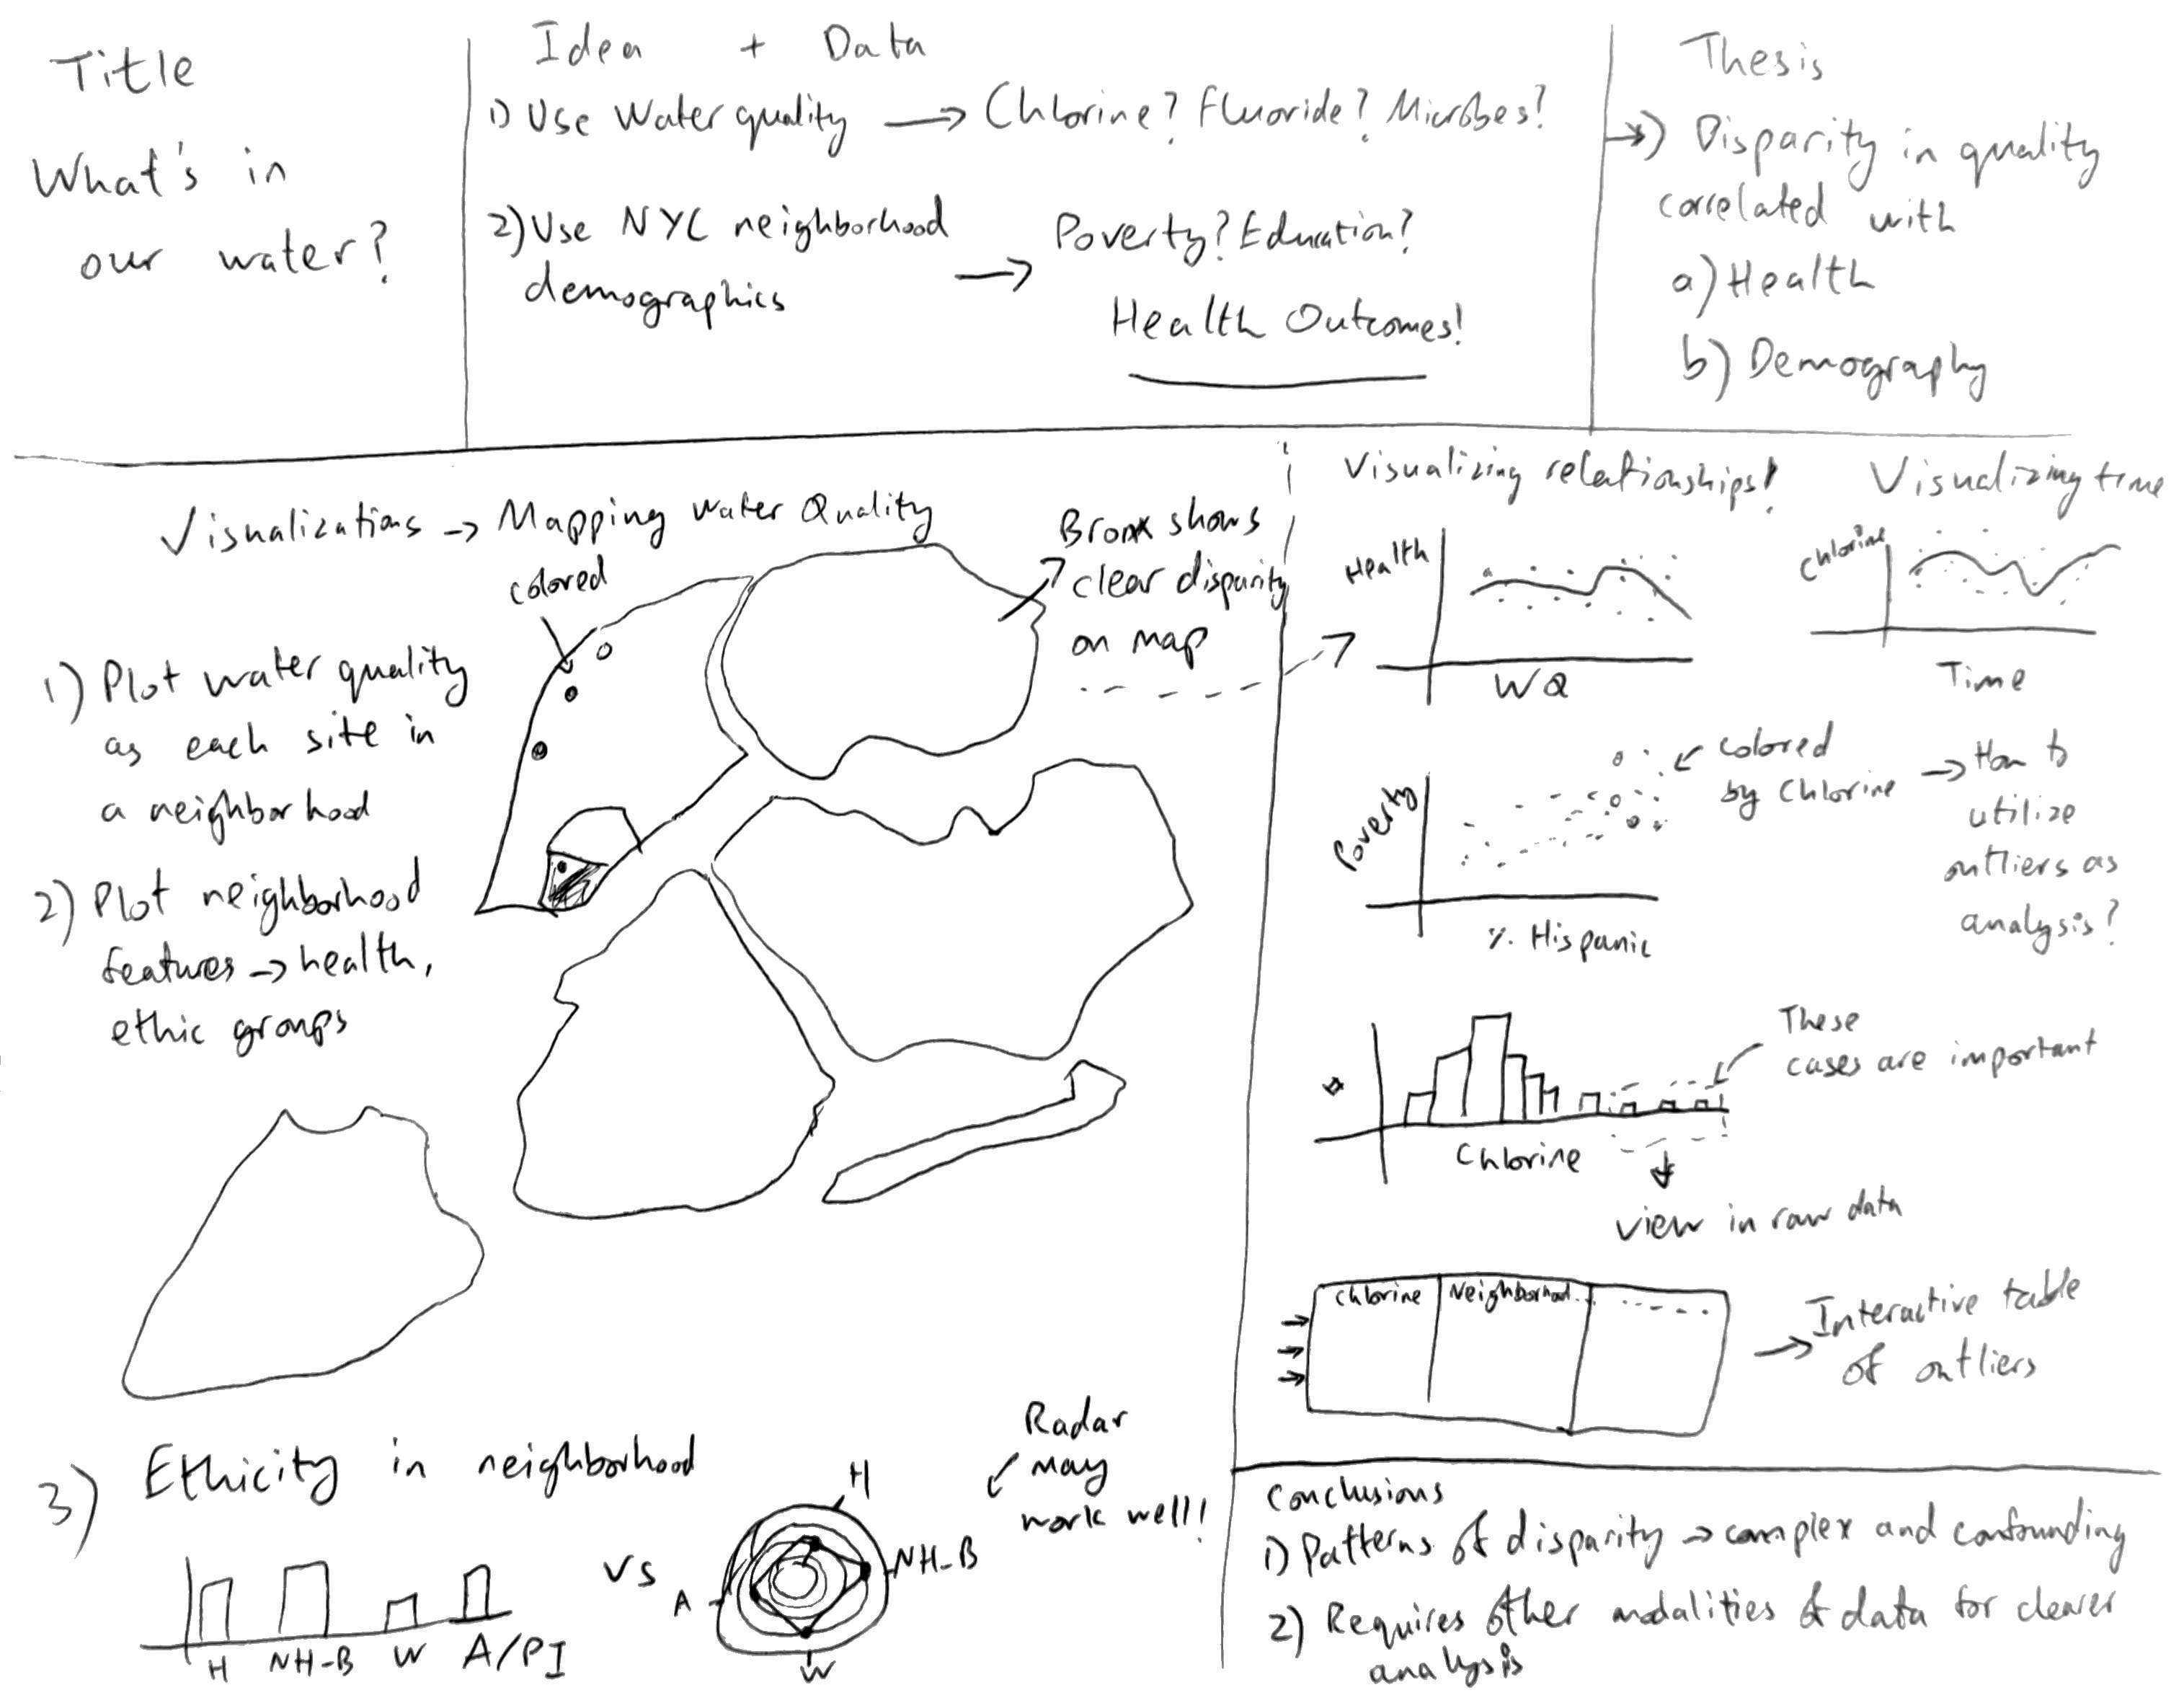 Title
What's in
our water?
Idea + Data
1) Use Water quality → Chlorine? Fluoride? Microbes?
2) Use NYC neighborhood
demographics
→ Poverty? Education?
Health Outcomes!
Thesis
→) Disparity in quality
correlated with
a) Health
b) Demography
Visualizations → Mapping Water Quality
colored
Bronx shows
clear disparity
on map
1) Plot water quality
as each site in
a neighborhood
2) Plot neighborhood
features → health,
ethic groups
3) Ethicity in neighborhood
H NH-B W A/PI
vs
H
NH-B
A
W
Radar
may
work well!
Visualizing relationships!
Health
WQ
Visualizing time
Chlorine
Time
Poverty
% Hispanic
colored
by Chlorine → How to
utilize
outliers as
analysis?
#
Chlorine
These
cases are important
view in raw data
Chlorine Neighborhood...
→ Interactive table
of outliers
Conclusions
1) Patterns of disparity → complex and confounding
2) Requires other modalities of data for clearer
analysis